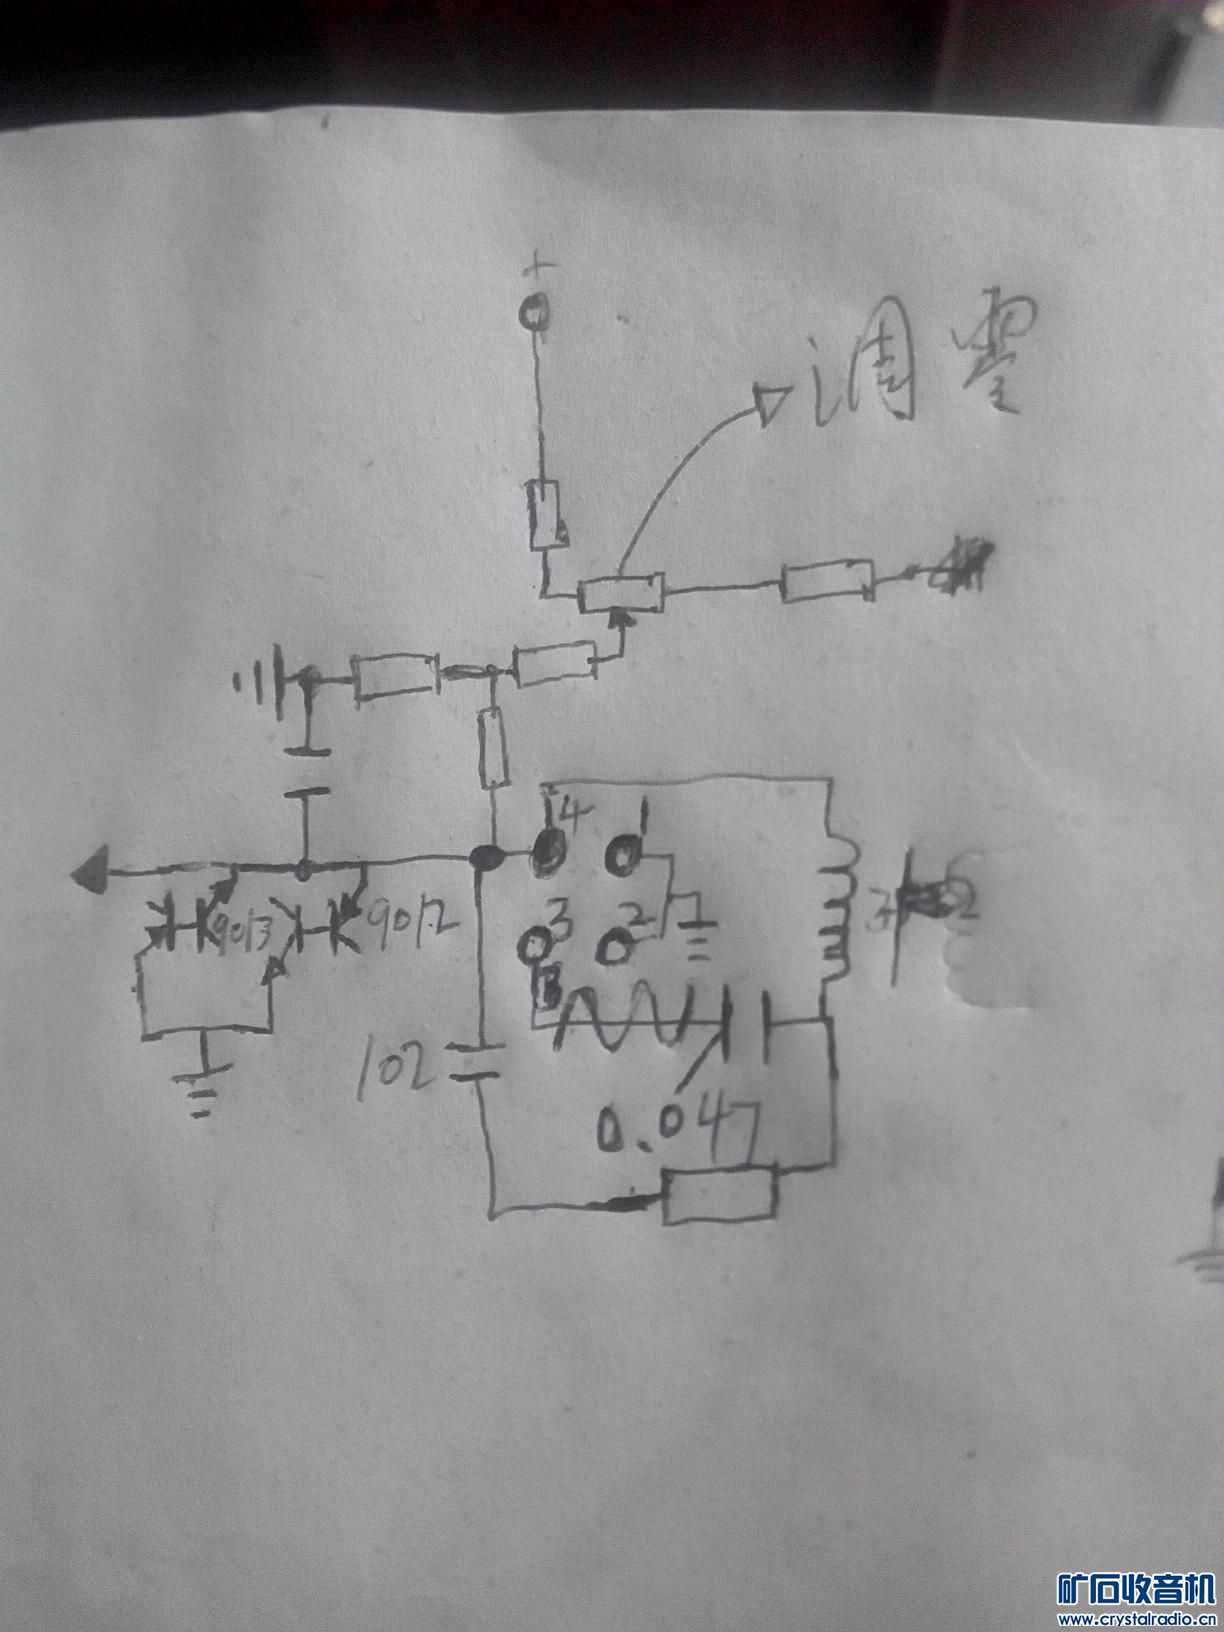 +
调零
4
1
3
2
9013
9012
102
0.047
矿石收音机
www.crystalradio.cn